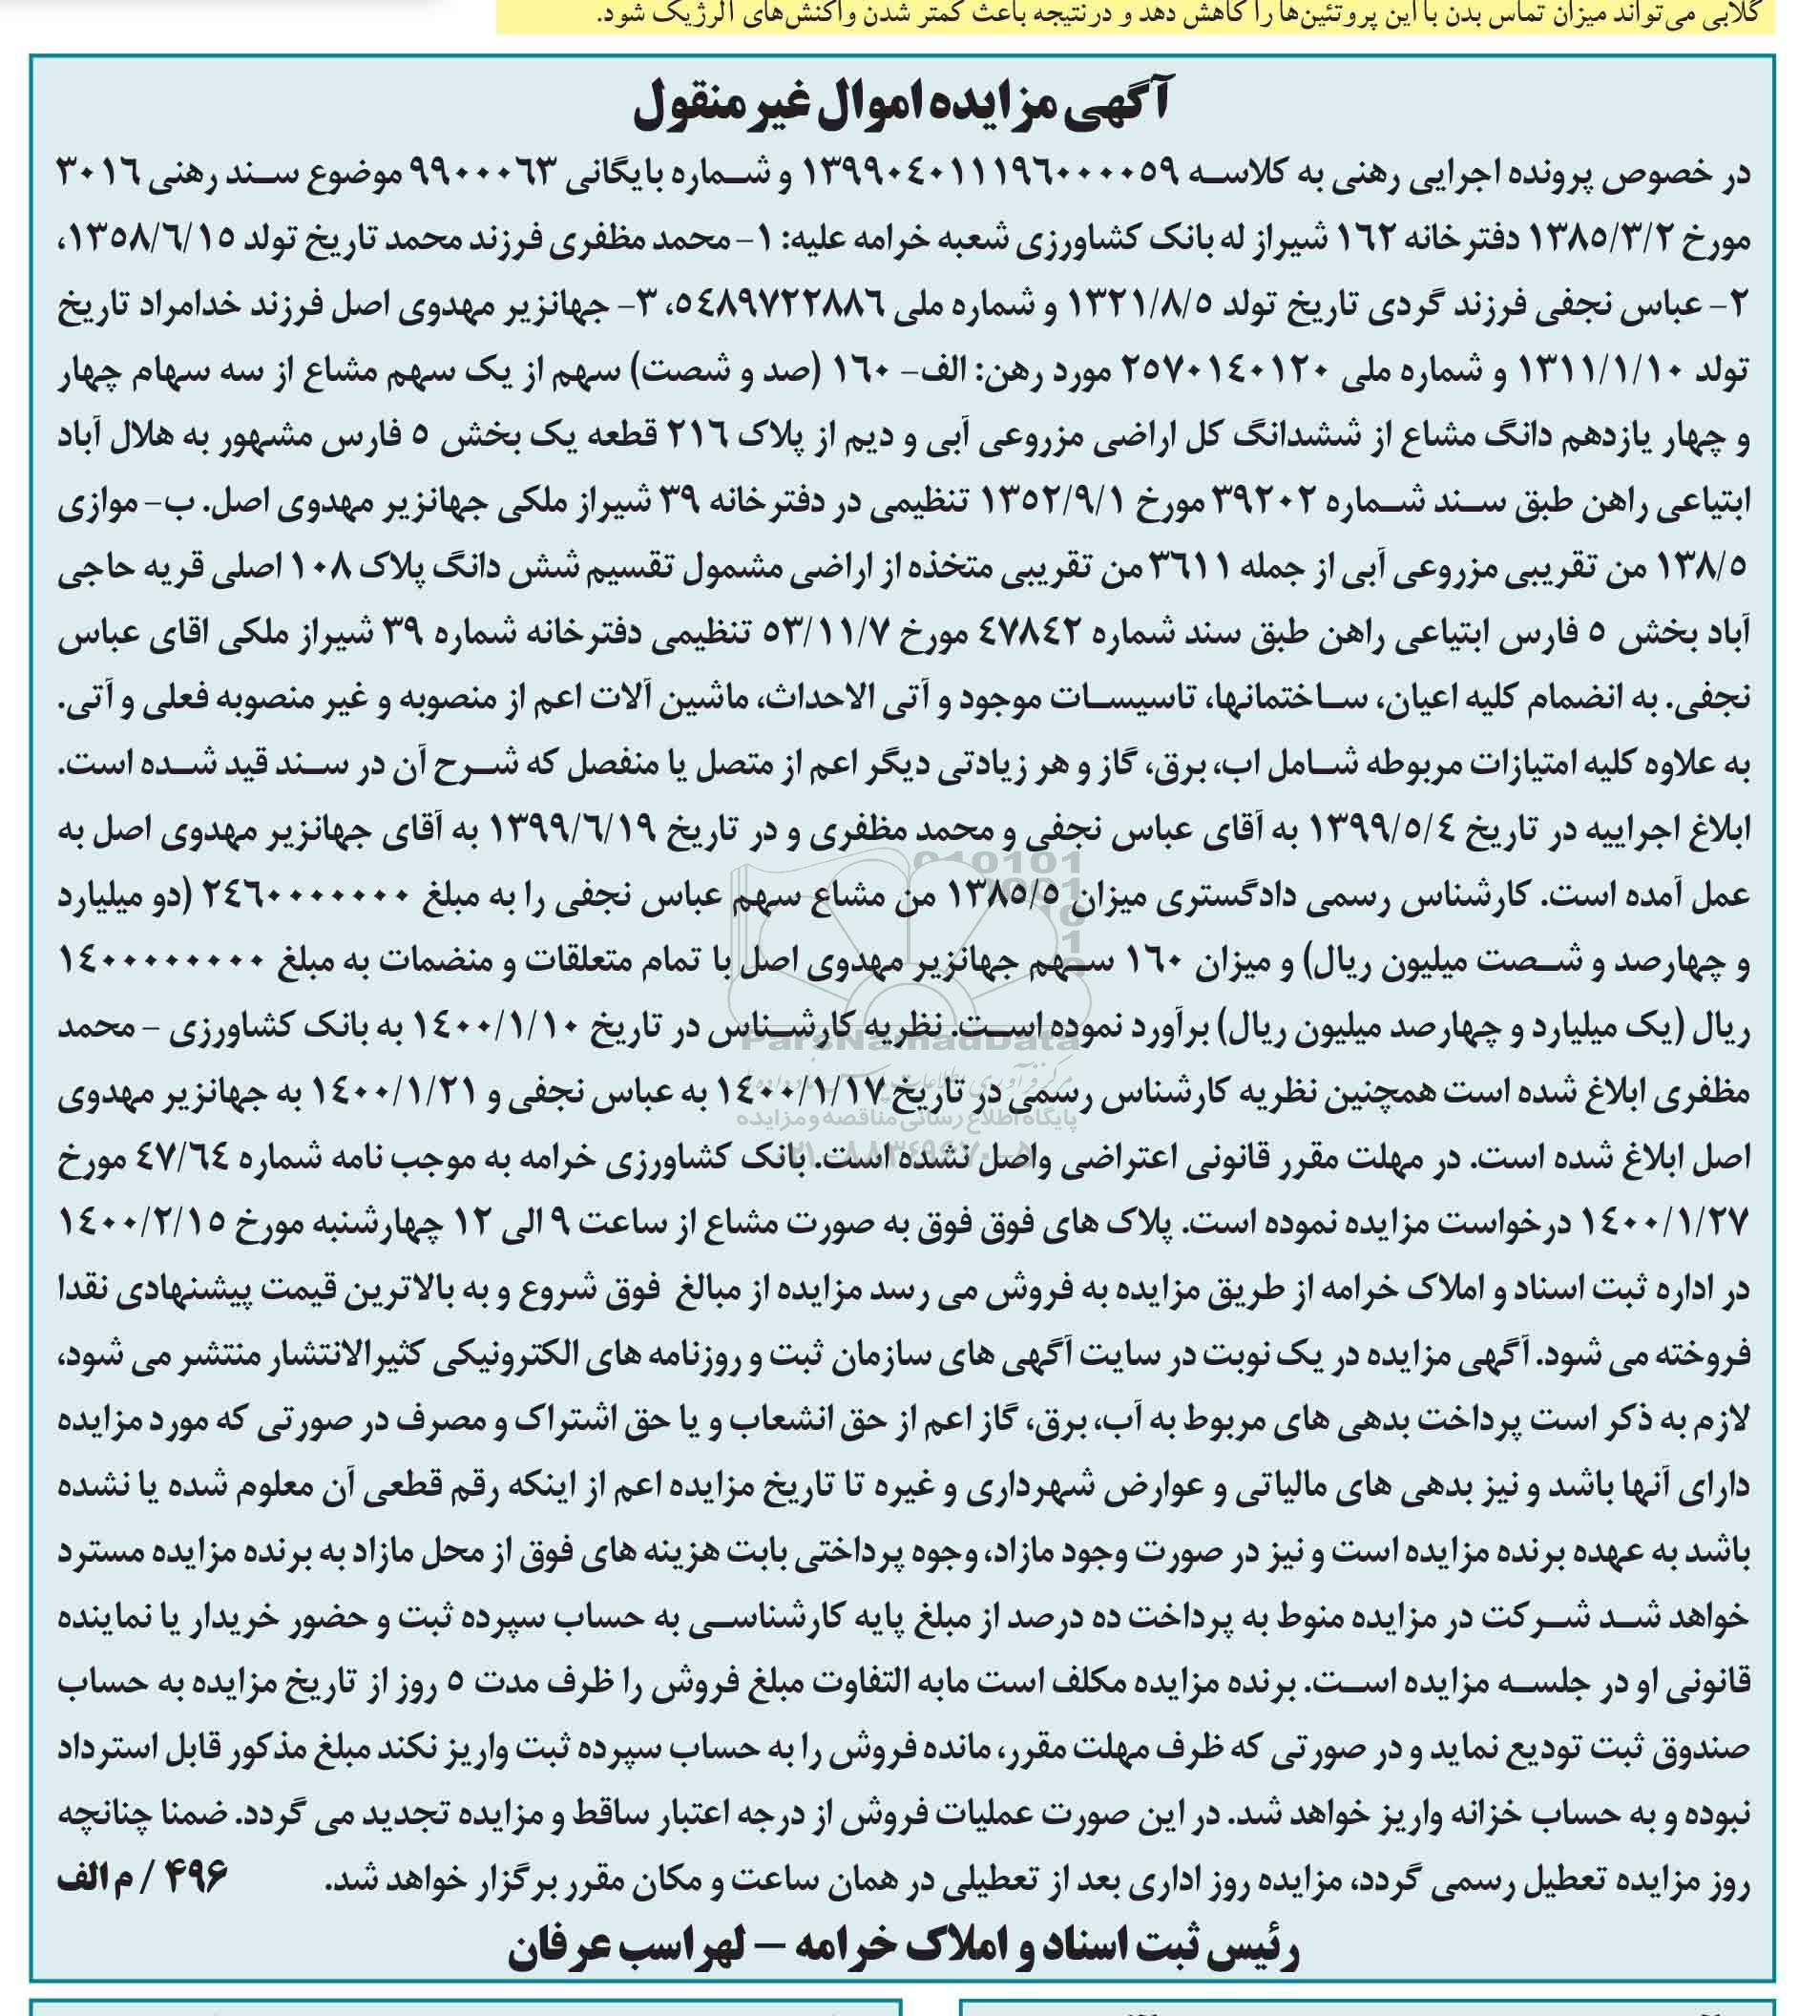 گلابی می‌تواند میزان تماس بدن با این پروتئین‌ها را کاهش دهد و درنتیجه باعث کمتر شدن واکنش‌های آلرژیک شود.
آگهی مزایده اموال غیر منقول
در خصوص پرونده اجرایی رهنی به کلاسه ۱۳۹۹۰۴۰۱۱۱۹۶۰۰۰۰۵۹ و شماره بایگانی ۹۹۰۰۰۶۳ موضوع سند رهنی ۳۰۱۶
مورخ ۱۳۸۵/۳/۲ دفترخانه ۱۶۲ شیراز له بانک کشاورزی شعبه خرامه علیه: ۱- محمد مظفری فرزند محمد تاریخ تولد ۱۳۵۸/۶/۱۵،
۲- عباس نجفی فرزند گردی تاریخ تولد ۱۳۲۱/۸/۵ و شماره ملی ۵۴۸۹۷۲۲۸۸۶، ۳- جهانزیر مهدوی اصل فرزند خدامراد تاریخ
تولد ۱۳۱۱/۱/۱۰ و شماره ملی ۲۵۷۰۱۴۰۱۲۰ مورد رهن: الف- ۱۶۰ (صد و شصت) سهم از یک سهم مشاع از سه سهام چهار
و چهار یازدهم دانگ مشاع از ششدانگ کل اراضی مزروعی آبی و دیم از پلاک ۲۱۶ قطعه یک بخش ۵ فارس مشهور به هلال آباد
ابتیاعی راهن طبق سند شماره ۳۹۲۰۲ مورخ ۱۳۵۲/۹/۱ تنظیمی در دفترخانه ۳۹ شیراز ملکی جهانزیر مهدوی اصل. ب- موازی
۱۳۸/۵ من تقریبی مزروعی آبی از جمله ۳۶۱۱ من تقریبی متخذه از اراضی مشمول تقسیم شش دانگ پلاک ۱۰۸ اصلی قریه حاجی
آباد بخش ۵ فارس ابتیاعی راهن طبق سند شماره ۴۷۸۴۲ مورخ ۵۳/۱۱/۷ تنظیمی دفترخانه شماره ۳۹ شیراز ملکی اقای عباس
نجفی. به انضمام کلیه اعیان، ساختمانها، تاسیسات موجود و آتی الاحداث، ماشین آلات اعم از منصوبه و غیر منصوبه فعلی و آتی.
به علاوه کلیه امتیازات مربوطه شامل اب، برق، گاز و هر زیادتی دیگر اعم از متصل یا منفصل که شرح آن در سند قید شده است.
ابلاغ اجراییه در تاریخ ۱۳۹۹/۵/۴ به آقای عباس نجفی و محمد مظفری و در تاریخ ۱۳۹۹/۶/۱۹ به آقای جهانزیر مهدوی اصل به
عمل آمده است. کارشناس رسمی دادگستری میزان ۱۳۸۵/۵ من مشاع سهم عباس نجفی را به مبلغ ۲۴۶۰۰۰۰۰۰۰ (دو میلیارد
و چهارصد و شصت میلیون ریال) و میزان ۱۶۰ سهم جهانزیر مهدوی اصل با تمام متعلقات و منضمات به مبلغ ۱۴۰۰۰۰۰۰۰۰
ریال (یک میلیارد و چهارصد میلیون ریال) برآورد نموده است. نظریه کارشناس در تاریخ ۱۴۰۰/۱/۱۰ به بانک کشاورزی - محمد
مظفری ابلاغ شده است همچنین نظریه کارشناس رسمی در تاریخ ۱۴۰۰/۱/۱۷ به عباس نجفی و ۱۴۰۰/۱/۲۱ به جهانزیر مهدوی
اصل ابلاغ شده است. در مهلت مقرر قانونی اعتراضی واصل نشده است. بانک کشاورزی خرامه به موجب نامه شماره ۴۷/۶۴ مورخ
۱۴۰۰/۱/۲۷ درخواست مزایده نموده است. پلاک های فوق فوق به صورت مشاع از ساعت ۹ الی ۱۲ چهارشنبه مورخ ۱۴۰۰/۲/۱۵
در اداره ثبت اسناد و املاک خرامه از طریق مزایده به فروش می رسد مزایده از مبالغ فوق شروع و به بالاترین قیمت پیشنهادی نقدا
فروخته می شود. آگهی مزایده در یک نوبت در سایت آگهی های سازمان ثبت و روزنامه های الکترونیکی کثیرالانتشار منتشر می شود،
لازم به ذکر است پرداخت بدهی های مربوط به آب، برق، گاز اعم از حق انشعاب و یا حق اشتراک و مصرف در صورتی که مورد مزایده
دارای آنها باشد و نیز بدهی های مالیاتی و عوارض شهرداری و غیره تا تاریخ مزایده اعم از اینکه رقم قطعی آن معلوم شده یا نشده
باشد به عهده برنده مزایده است و نیز در صورت وجود مازاد، وجوه پرداختی بابت هزینه های فوق از محل مازاد به برنده مزایده مسترد
خواهد شد شرکت در مزایده منوط به پرداخت ده درصد از مبلغ پایه کارشناسی به حساب سپرده ثبت و حضور خریدار یا نماینده
قانونی او در جلسه مزایده است. برنده مزایده مکلف است مابه التفاوت مبلغ فروش را ظرف مدت ۵ روز از تاریخ مزایده به حساب
صندوق ثبت تودیع نماید و در صورتی که ظرف مهلت مقرر، مانده فروش را به حساب سپرده ثبت واریز نکند مبلغ مذکور قابل استرداد
نبوده و به حساب خزانه واریز خواهد شد. در این صورت عملیات فروش از درجه اعتبار ساقط و مزایده تجدید می گردد. ضمنا چنانچه
روز مزایده تعطیل رسمی گردد، مزایده روز اداری بعد از تعطیلی در همان ساعت و مکان مقرر برگزار خواهد شد. ۴۹۶ / م الف
رئیس ثبت اسناد و املاک خرامه - لهراسب عرفان
ParsNamadData
پایگاه اطلاع رسانی مناقصه و مزایده